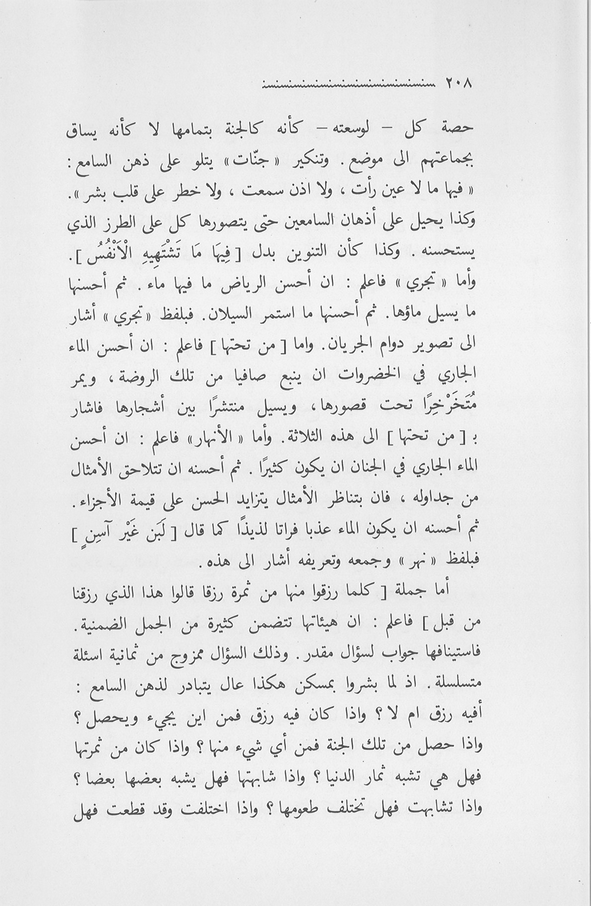 ٢٠٨
حصة كل – لوسعته – كأنه كالجنة بتمامها لا كأنه يساق
بجماعتهم الى موضع . وتنكير « جنّات » يتلو على ذهن السامع :
« فيها ما لا عين رأت ، ولا اذن سمعت ، ولا خطر على قلب بشر » .
وكذا يحيل على أذهان السامعين حتى يتصورها كل على الطرز الذي
يستحسنه . وكذا كأن التنوين بدل [ فِيهَا مَا تَشْتَهِيهِ الْأَنْفُسُ ] .
وأما « تجري » فاعلم : ان أحسن الرياض ما فيها ماء . ثم أحسنها
ما يسيل ماؤها . ثم أحسنها ما استمر السيلان . فبلفظ « تجري » أشار
الى تصوير دوام الجريان . واما [ من تحتها ] فاعلم : ان أحسن الماء
الجاري في الخضروات ان ينبع صافيا من تلك الروضة ، ويمر
مُتَخَرْخِرًا تحت قصورها ، ويسيل منتشرًا بين أشجارها فاشار
بـ [ من تحتها ] الى هذه الثلاثة . وأما « الأنهار » فاعلم : ان أحسن
الماء الجاري في الجنان ان يكون كثيرًا . ثم أحسنه ان تتلاحق الأمثال
من جداوله ، فان بتناظر الأمثال يتزايد الحسن على قيمة الأجزاء .
ثم أحسنه ان يكون الماء عذبا فراتا لذيذًا كما قال [ لَبَن غَيْر آسِنٍ ]
فبلفظ « نهر » وجمعه وتعريفه أشار الى هذه .
أما جملة [ كلما رزقوا منها من ثمرة رزقا قالوا هذا الذي رزقنا
من قبل ] فاعلم : ان هيئاتها تتضمن كثيرة من الجمل الضمنية .
فاستينافها جواب لسؤال مقدر . وذلك السؤال ممزوج من ثمانية اسئلة
متسلسلة . اذ لما بشروا بمسكن هكذا عال يتبادر لذهن السامع :
أفيه رزق ام لا ؟ واذا كان فيه رزق فمن اين يجيء ويحصل ؟
واذا حصل من تلك الجنة فمن أي شيء منها ؟ واذا كان من ثمرتها
فهل هي تشبه ثمار الدنيا ؟ واذا شابهتها فهل يشبه بعضها بعضا ؟
واذا تشابهت فهل تختلف طعومها ؟ واذا اختلفت وقد قطعت فهل